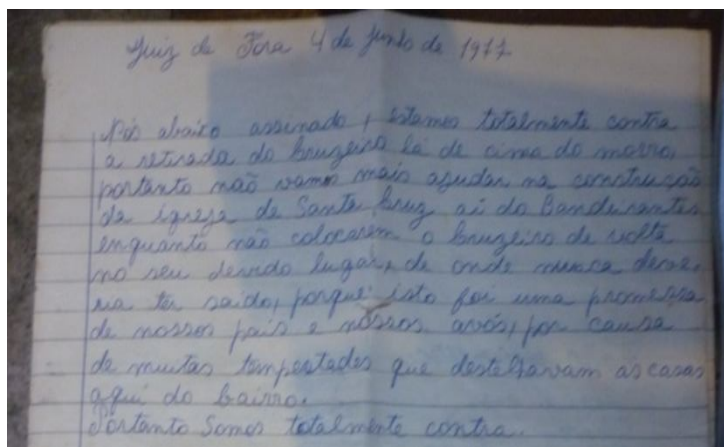 Juiz de Fora 4 de Junho de 1977
Nós abaixo assinado, estamos totalmente contra
a retirada do Cruzeiro lá de cima do morro,
portanto não vamos mais ajudar na construção
da igreja de Santa Cruz aí do Bandeirantes
enquanto não colocarem o Cruzeiro de volta
no seu devido lugar, de onde nunca deve-
ria ter saido, porque isto foi uma promessa
de nossos pais e nossos avós, por causa
de muitas tempestades que destelhavam as casas
aqui do bairro.
Portanto Somos totalmente contra.